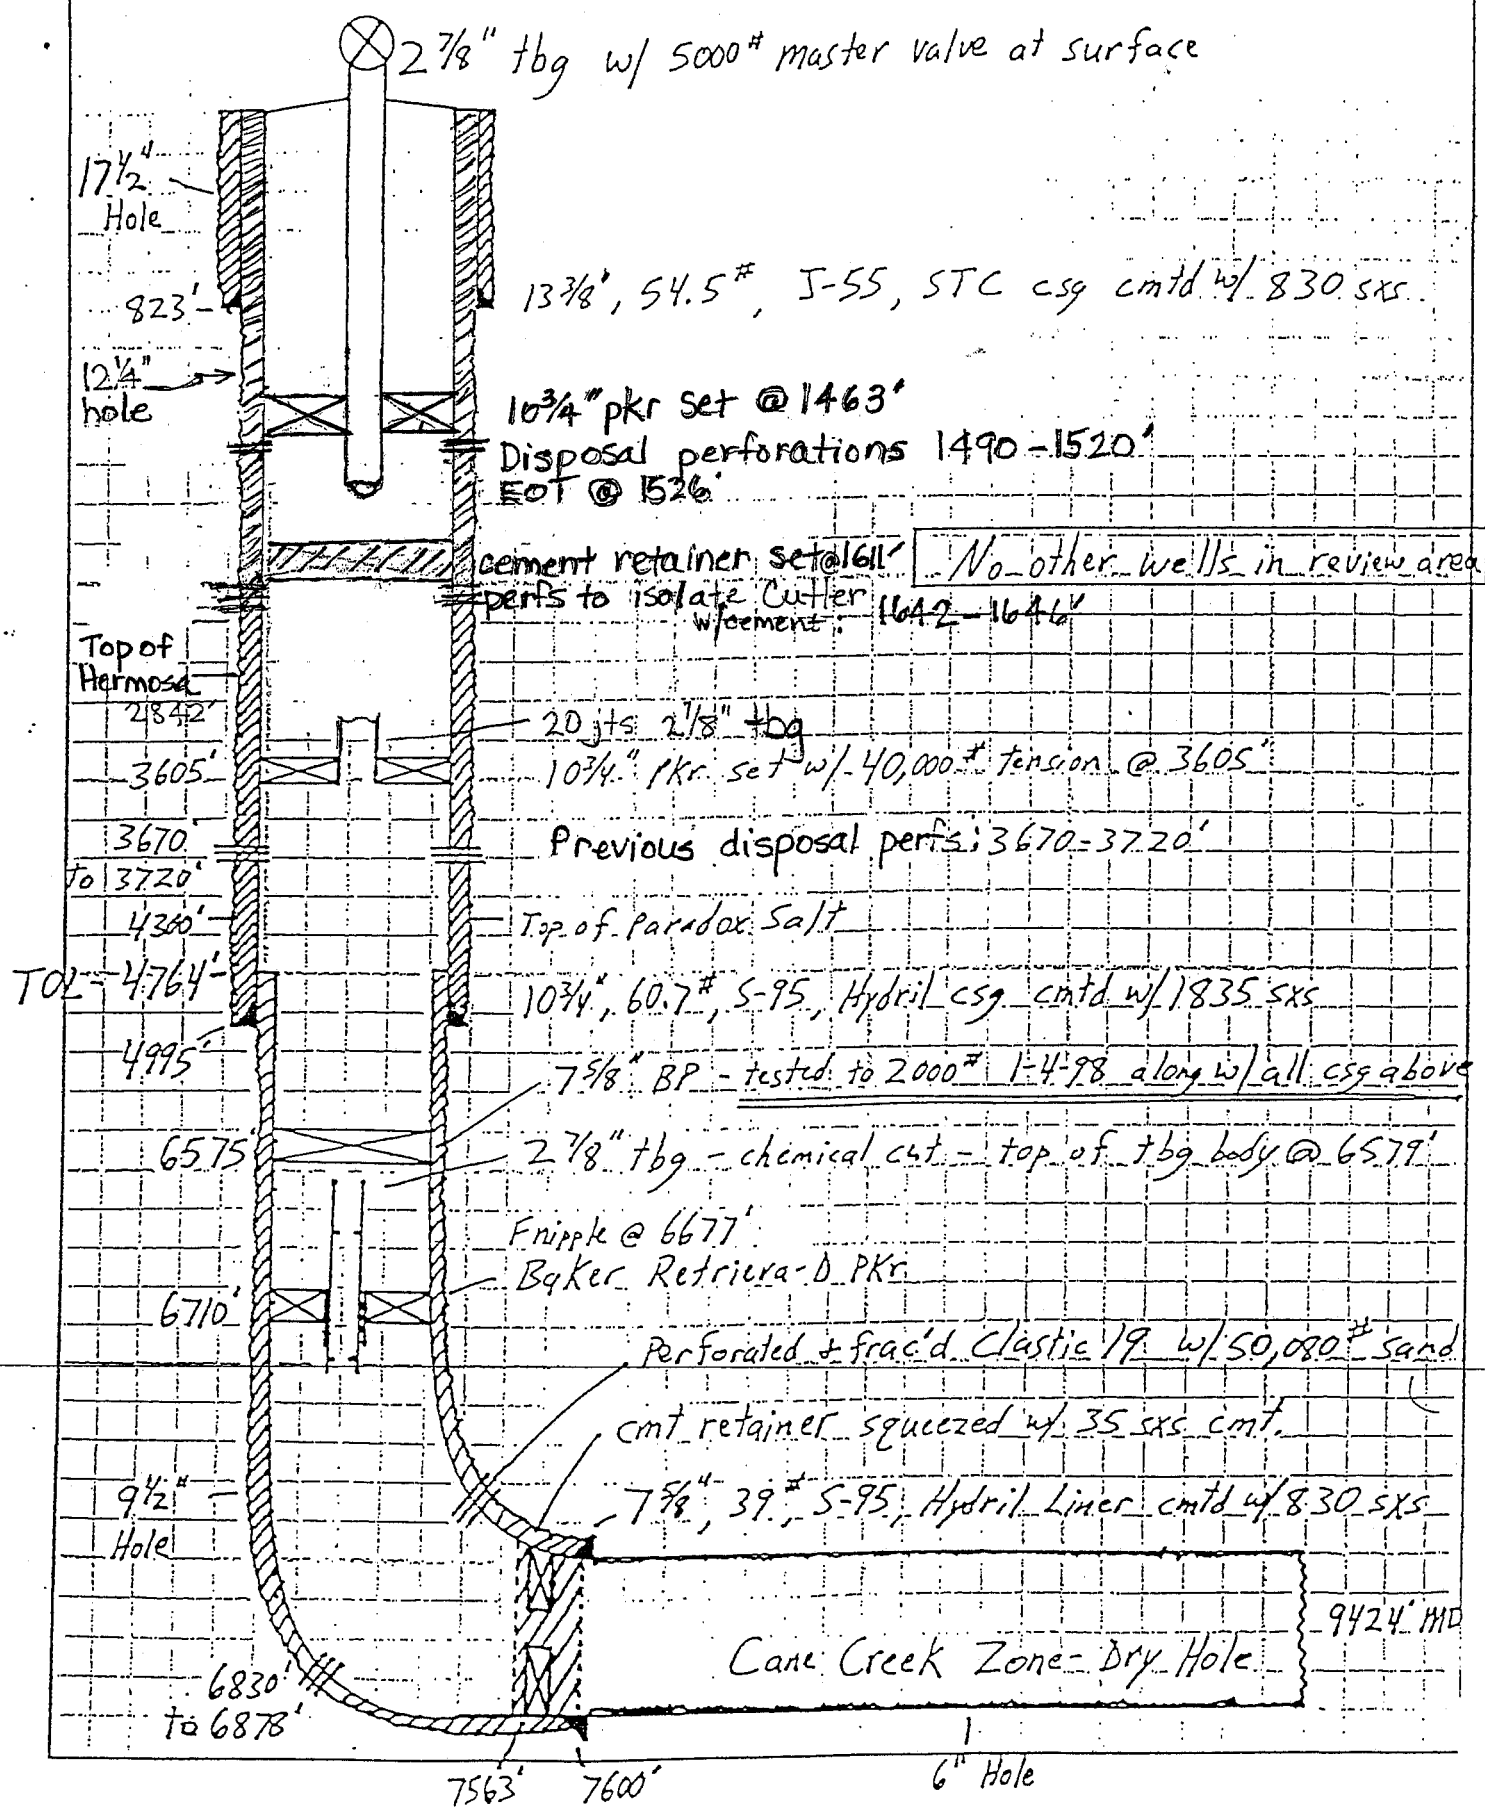 2 7/8" tbg w/ 5000# master valve at surface
17 1/2"
Hole
823'
13 3/8", 54.5#, J-55, STC csg cmtd w/ 830 sxs
12 1/4"
hole
10 3/4" pkr set @ 1463'
Disposal perforations 1490-1520'
EOT @ 1526'
cement retainer set@1611'
No other wells in review area
perfs to isolate Cutler
w/cement: 1642-1646'
Top of
Hermosa
2842'
20 jts 2 7/8" tbg
3605'
10 3/4" Pkr set w/ 40,000# tension @ 3605'
3670'
to 3720'
Previous disposal perfs: 3670-3720'
4360'
Top of Paradox Salt
TOL - 4764'
10 3/4", 60.7#, S-95, Hydril csg cmtd w/ 1835 sxs
4995'
7 5/8" BP - tested to 2000# 1-4-98 along w/ all csg above
6575'
2 7/8" tbg - chemical cut - top of tbg body @ 6579'
F nipple @ 6677'
Baker Retrieva-D Pkr
6710'
Perforated & frac'd Clastic 19 w/ 50,080# sand
cmt retainer squeezed w/ 35 sxs cmt.
9 1/2"
Hole
7 5/8", 39#, S-95, Hydril Liner cmtd w/ 830 sxs
9424' MD
Cane Creek Zone - Dry Hole
6830'
to 6878'
7563'
7600'
6" Hole